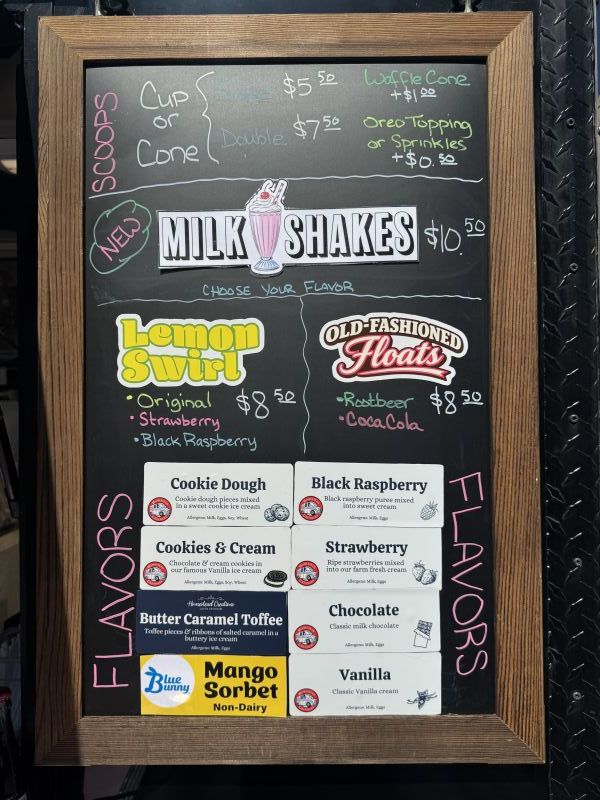 SCOOPS
Cup
or
Cone
Single $5.50
Double $7.50
Waffle Cone
+$1.00
Oreo Topping
or Sprinkles
+$0.50
NEW
MILK SHAKES $10.50
CHOOSE YOUR FLAVOR
Lemon
Swirl
• Original $8.50
• Strawberry
• Black Raspberry
OLD-FASHIONED
Floats
• Rootbeer $8.50
• CocaCola
FLAVORS
Cookie Dough
Cookie dough pieces mixed
in a sweet cookie ice cream
Allergens: Milk, Eggs, Soy, Wheat
Cookies & Cream
Chocolate & cream cookies in
our famous Vanilla ice cream
Allergens: Milk, Eggs, Soy, Wheat
Homestead Creations
Butter Caramel Toffee
Toffee pieces & ribbons of salted caramel in a
buttery ice cream
Allergens: Milk, Eggs
Blue
Bunny
Mango
Sorbet
Non-Dairy
Black Raspberry
Black raspberry puree mixed
into sweet cream
Allergens: Milk, Eggs
Strawberry
Ripe strawberries mixed
into our farm fresh cream
Allergens: Milk, Eggs
Chocolate
Classic milk chocolate
Allergens: Milk, Eggs
Vanilla
Classic Vanilla cream
Allergens: Milk, Eggs
FLAVORS